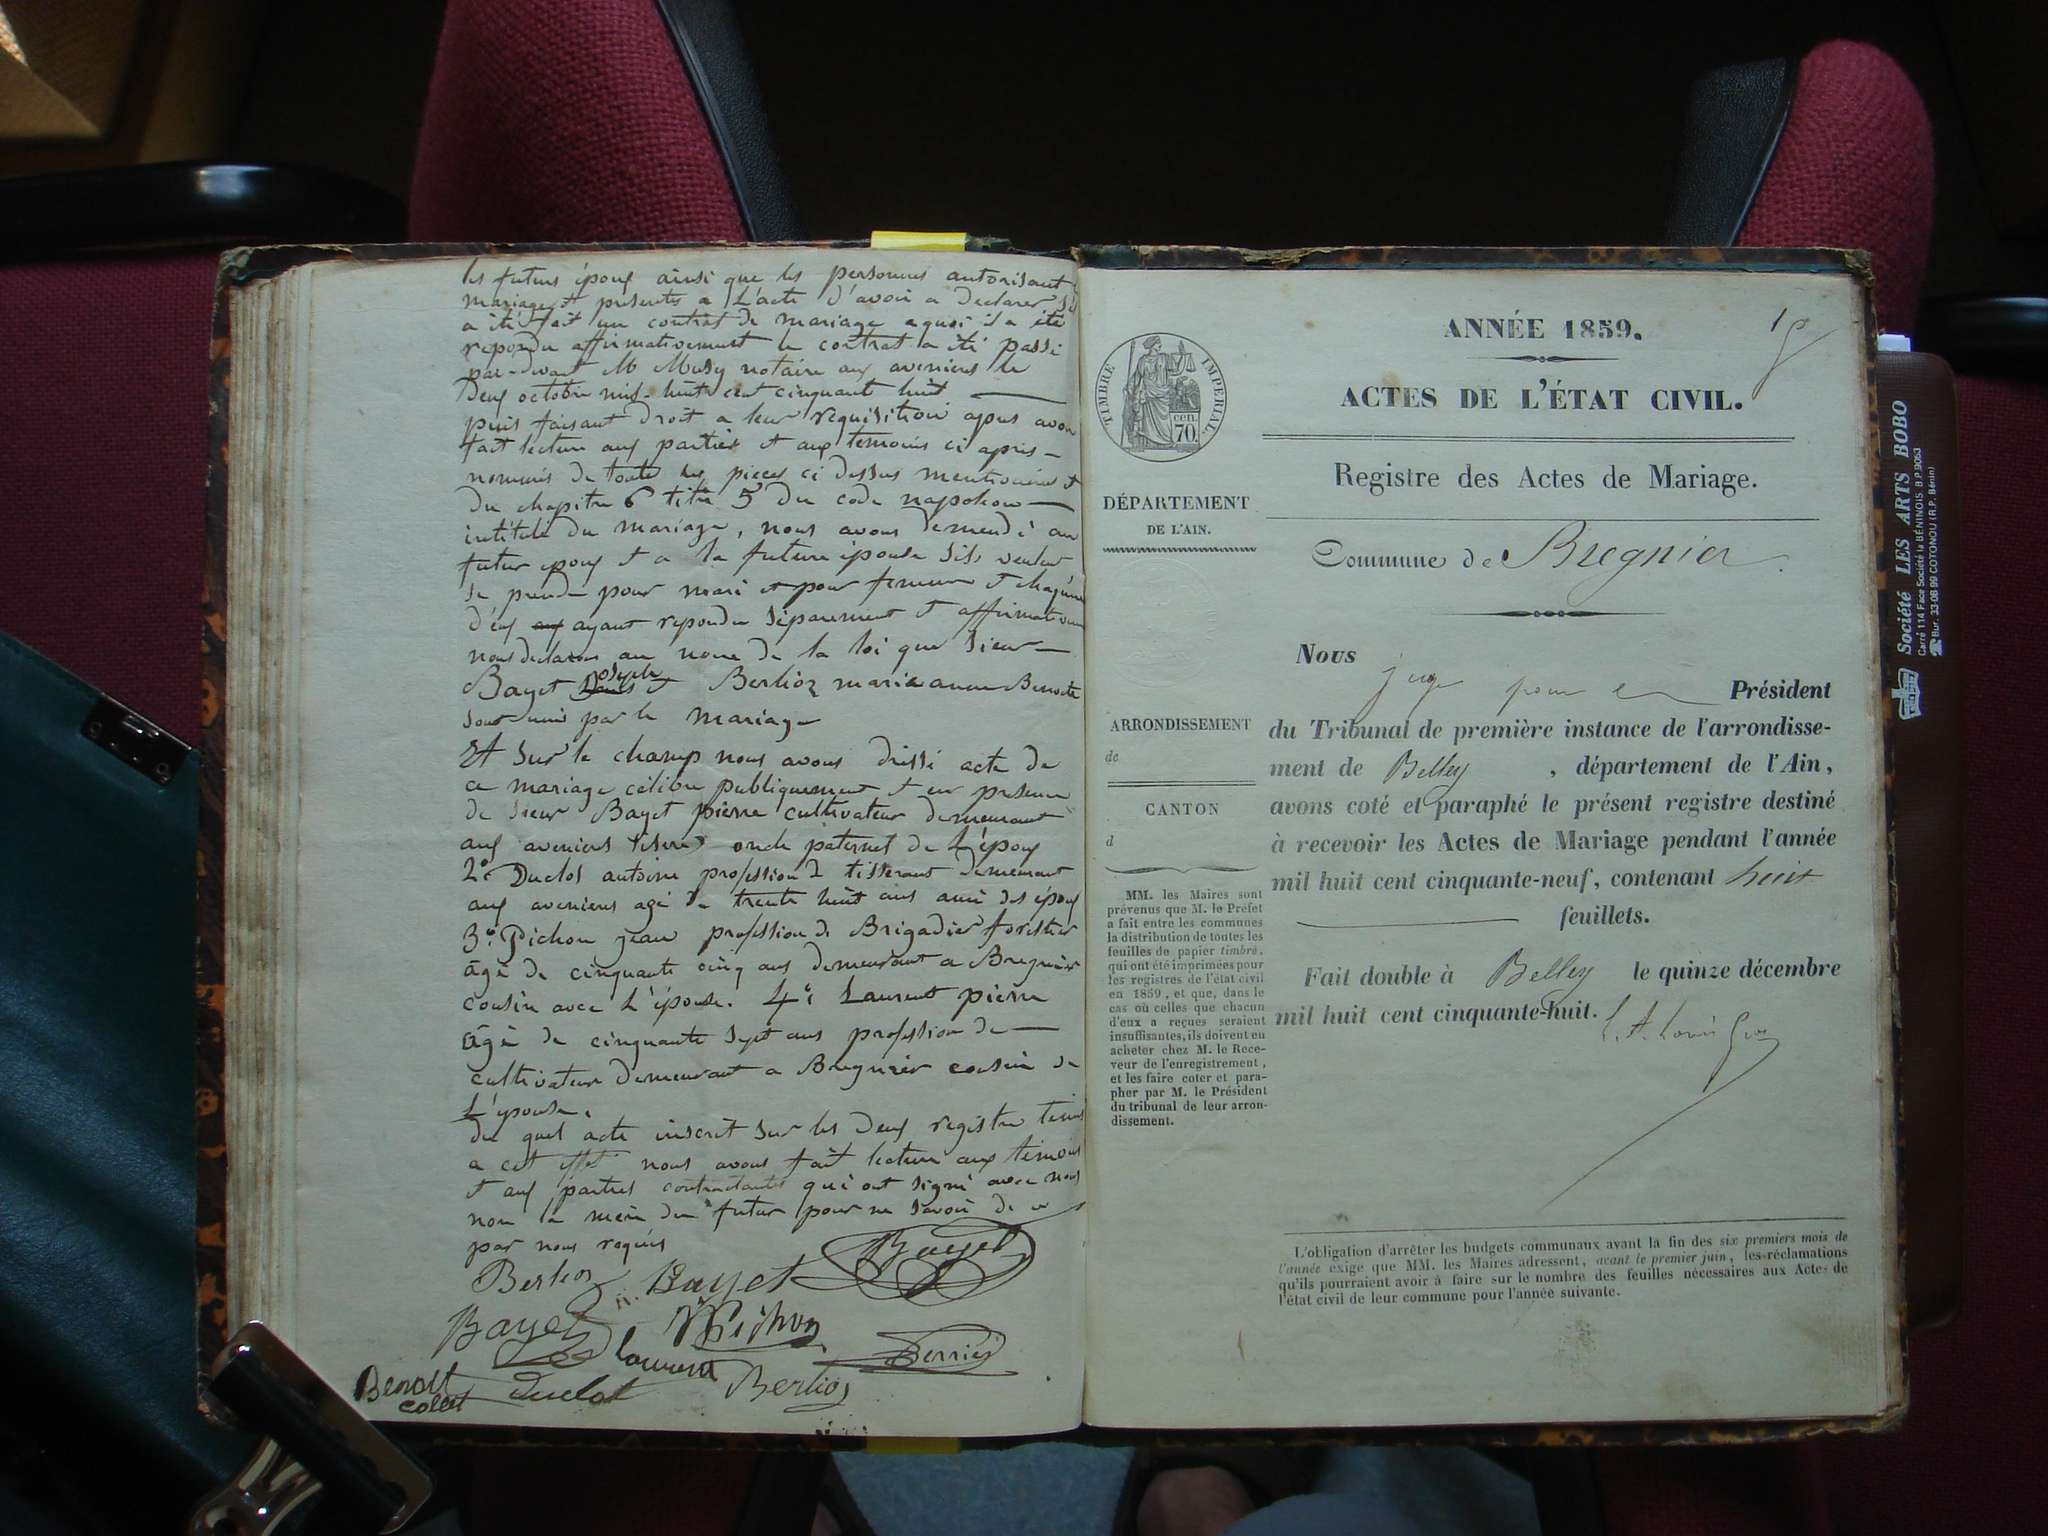 les futurs époux ainsi que les personnes autorisant
mariage et presentes a L'acte d'avoir a declarer
a été fait un contrat de mariage a quoi il a été
repondu affirmativement le contrat a été passé
par-devant M Musy notaire aux avenieres le
Deux octobre mil-huit cent cinquant huit
puis faisant droit a leur requisition apres avoir
fait lecture aux parties et aux temoins ci apres-
nommés de toute les pieces ci dessus mentionnées et
du chapitre 6 titre 5 du code napoleon
intitulé du mariage, nous avons demendé au
futur epoux et a la future épouse sils veulent
se prendre pour mari et pour femme et chaqu'un
d'eux ayant repondu séparement et affirmativement
nous declarons au nom de la loi que sieur
Bayet joseph et Berlioz marie anne Benoite
sont unis par le mariage
Et sur le champ nous avons dressé acte de
ce mariage célébré publiquement et en presence
de sieur Bayet pierre cultivateur demeurant
aux avenieres oncle paternel de L'époux
2e Duclos antoine profession de tisserant demeurant
aux avenieres agé de trente huit ans ami des époux
3e Pichon jean profession de Brigadier forestier
âgé de cinquante cinq ans demeurant a Bregnier
cousin avec L'épouse. 4e Laurent pierre
âgé de cinquante sept ans profession de
cultivateur demeurant a Bregnier cousin de
L'épouse.
du quel acte inscrit sur les deux registre tenus
a cet effet nous avons fait lecture aux temoins
et aux parties contractantes qui ont signé avec nous
non la mère du futur pour ne savoir de ce
par nous requis
Berlioz Bayet Bayet
Bayet Pichon
laurent Perrier
Benoit Duclot Berlioz
colet
ANNÉE 1859.
ACTES DE L'ÉTAT CIVIL.
Registre des Actes de Mariage.
Commune de Bregnier
TIMBRE IMPÉRIAL
cen.
70.
DÉPARTEMENT
DE L'AIN.
ARRONDISSEMENT
de
CANTON
d
MM. les Maires sont
prévenus que M. le Préfet
a fait entre les communes
la distribution de toutes les
feuilles de papier timbré,
qui ont été imprimées pour
les registres de l'état civil
en 1859, et que, dans le
cas où celles que chacun
d'eux a reçues seraient
insuffisantes, ils doivent en
acheter chez M. le Rece-
veur de l'enregistrement,
et les faire coter et para-
pher par M. le Président
du tribunal de leur arron-
dissement.
Nous juge pour le Président
du Tribunal de première instance de l'arrondisse-
ment de Belley, département de l'Ain,
avons coté et paraphé le présent registre destiné
à recevoir les Actes de Mariage pendant l'année
mil huit cent cinquante-neuf, contenant huit
feuillets.
Fait double à Belley le quinze décembre
mil huit cent cinquante-huit.
L'obligation d'arrêter les budgets communaux avant la fin des six premiers mois de
l'année exige que MM. les Maires adressent, avant le premier juin, les réclamations
qu'ils pourraient avoir à faire sur le nombre des feuilles nécessaires aux Actes de
l'état civil de leur commune pour l'année suivante.
Société LES ARTS BOBO
Carré 114 Face Société la BÉNINOIS B.P. 9063
Bur. 33-08 99 COTONOU (R.P. Bénin)